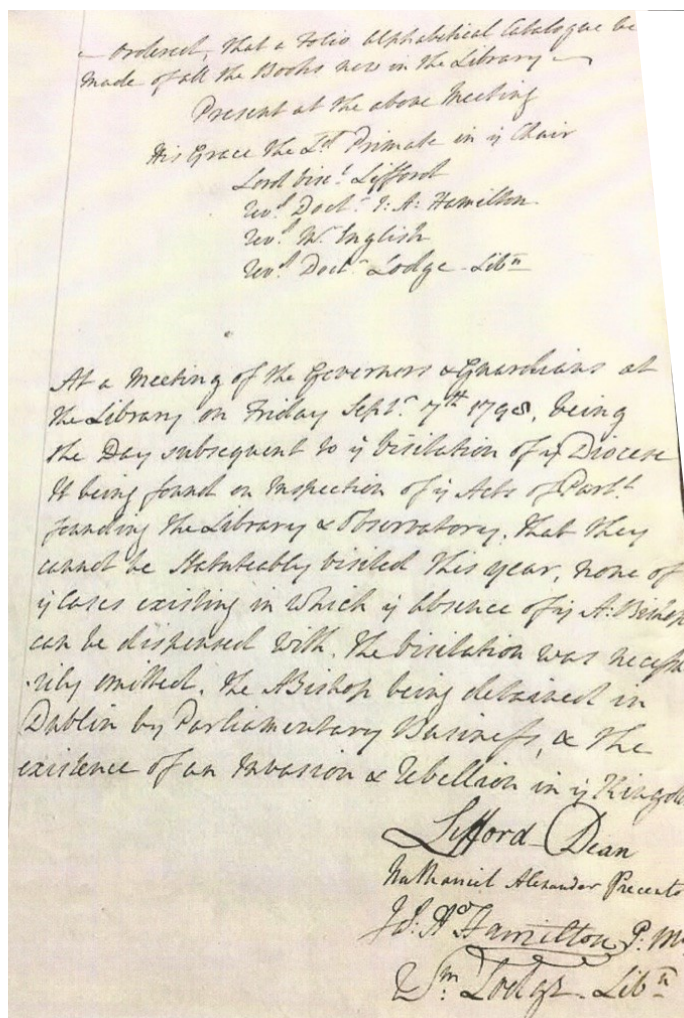 Ordered, that a Folio Alphabetical Catalogue be
made of all the Books now in the Library
Present at the above Meeting
His Grace the Ld Primate in ye Chair
Lord Visct. Lifford
Revd. Doctr. J: A: Hamilton
Revd. Wm. English
Revd. Doctr. Lodge - Libn
At a Meeting of the Governors & Guardians at
the Library on Friday Septr. 7th 1798, being
the Day subsequent to ye Visitation of ye Diocese
It being found on Inspection of ye Acts of Parlt.
founding the Library & Observatory, that they
cannot be Statuteably visited this year, none of
ye Cases existing in which ye absence of ye A:Bishop
can be dispensed with. The Visitation was necessa
-rily omitted. The ABishop being detained in
Dublin by Parliamentary Business, & the
existence of an Invasion & Rebellion in ye Kingdo
Lifford Dean
Nathaniel Alexander Precento
Js: Ao Hamilton P: M
Wm. Lodge. Libn